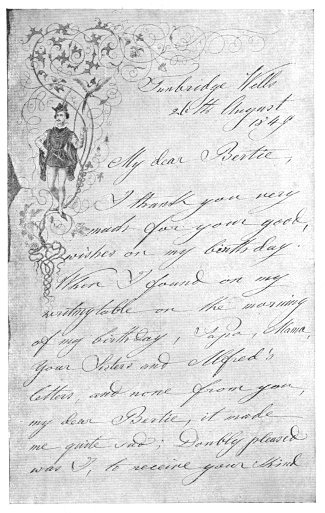 Tunbridge Wells
26th August
1849
My dear Bertie,
I thank you very
much for your good,
wishes on my birthday.
When I found on my
writing table on the morning
of my birthday, Papa, Mama,
your Sisters and Alfred's
letters, and none from you,
my dear Bertie, it made
me quite sad; Doubly pleased
was I, to receive your kind